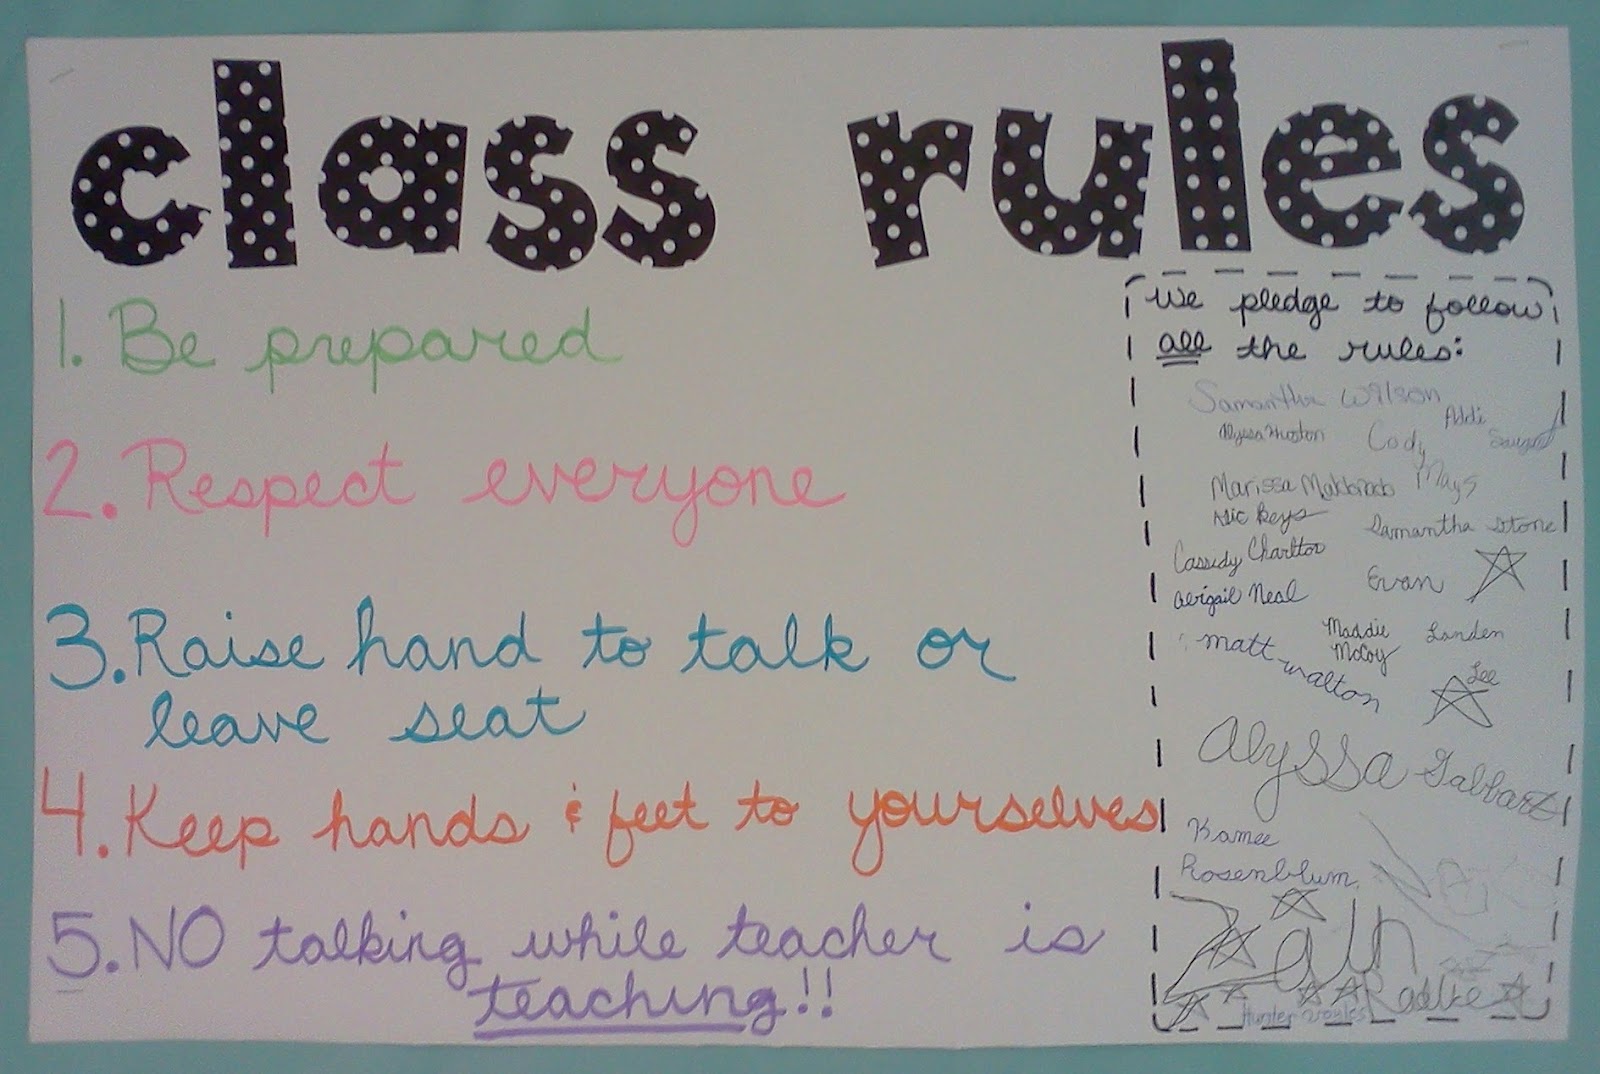 class rules
1. Be prepared
2. Respect everyone
3. Raise hand to talk or
leave seat
4. Keep hands & feet to yourselves
5. NO talking while teacher is
teaching!!
We pledge to follow
all the rules:
Samantha Wilson
Addi
Alyssa Huston
Cody
Mays
Marissa Maldonado
Samantha Stone
Cassidy Charlton
Evan
Abigail Neal
Matt Walton
Maddie
McCoy
Landen
Lee
Alyssa Gabbart
Kamee
Rosenblum
Zain
Hunter Voyles